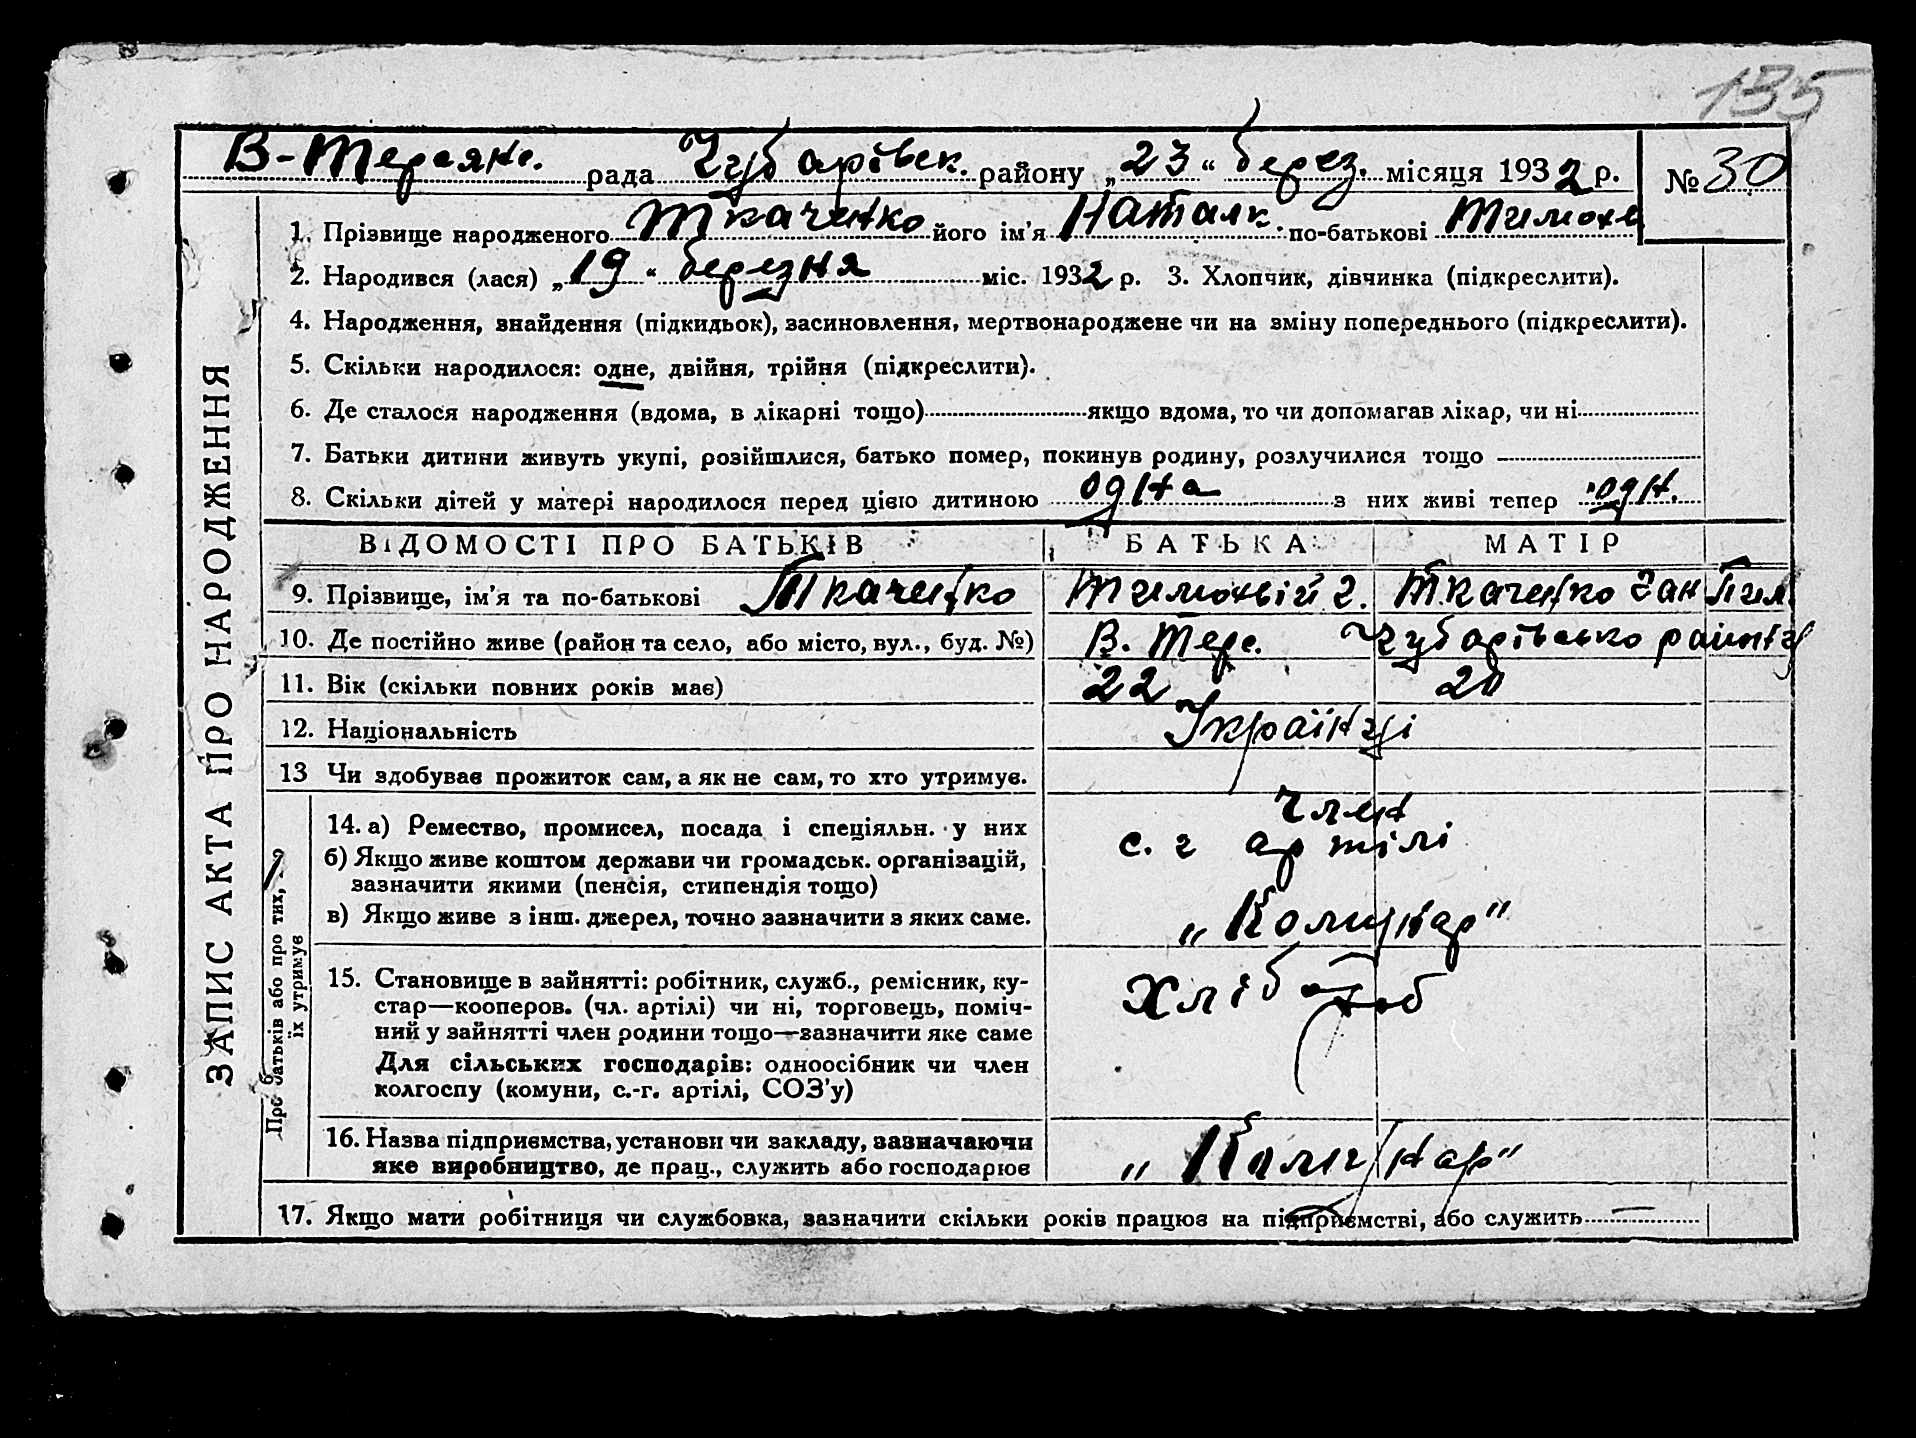 135
В-Терсянс. рада Чубарівськ. району „23“ берез. місяця 1932 р. № 30
ЗАПИС АКТА ПРО НАРОДЖЕННЯ
1. Прізвище народженого Ткаченко його ім'я Наталк. по-батькові Тимохв
2. Народився (лася) „19“ березня міс. 1932 р. 3. Хлопчик, дівчинка (підкреслити).
4. Народження, знайдення (підкидьок), засиновлення, мертвонароджене чи на зміну попереднього (підкреслити).
5. Скільки народилося: одне, двійня, трійня (підкреслити).
6. Де сталося народження (вдома, в лікарні тощо) якщо вдома, то чи допомагав лікар, чи ні
7. Батьки дитини живуть укупі, розійшлися, батько помер, покинув родину, розлучилися тощо
8. Скільки дітей у матері народилося перед цією дитиною одна з них живі тепер одн.
ВІДОМОСТІ ПРО БАТЬКІВ БАТЬКА МАТІР
9. Прізвище, ім'я та по-батькові Ткаченко Тимохвій г. Ткаченко Ган Пил
10. Де постійно живе (район та село, або місто, вул., буд. №) В. Терс. Чубарівсько району
11. Вік (скільки повних років має) 22 20
12. Національність Українці
13 Чи здобував прожиток сам, а як не сам, то хто утримує.
Про батьків або про тих, хто
їх утримує
14. а) Ремество, промисел, посада і спеціяльн. у них член
с. г артілі
б) Якщо живе коштом держави чи громадськ. організацій,
зазначити якими (пенсія, стипендія тощо)
в) Якщо живе з інш. джерел, точно зазначити з яких саме. „Комунар“
15. Становище в зайнятті: робітник, служб., ремісник, ку-
стар—кооперов. (чл. артілі) чи ні, торговець, поміч-
ний у зайнятті член родини тощо—зазначити яке саме
Хлібороб
Для сільських господарів: одноосібник чи член
колгоспу (комуни, с.-г. артілі, СОЗ'у)
16. Назва підприємства, установи чи закладу, зазначаючи
яке виробництво, де прац., служить або господарює „Комунар“
17. Якщо мати робітниця чи службовка, зазначити скільки років працює на підприємстві, або служить —